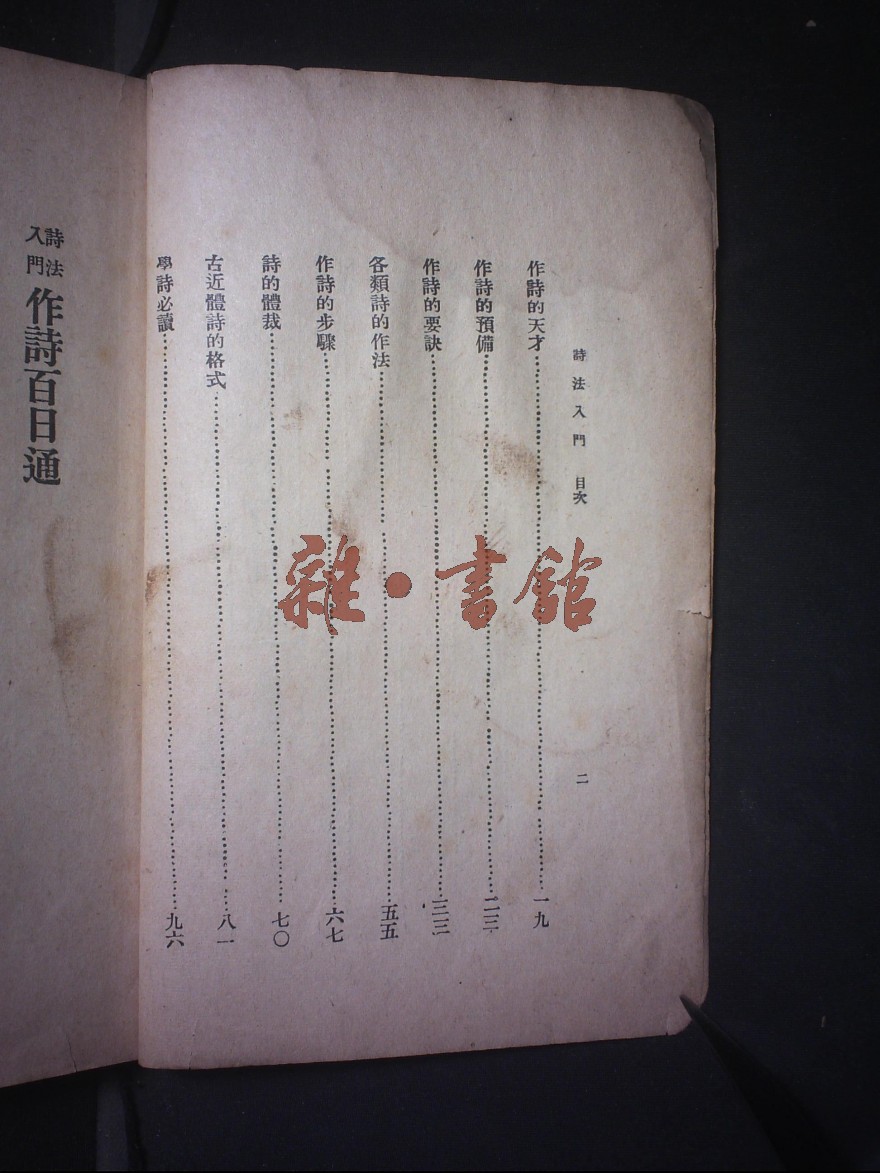 詩法入門 目次 二
作詩的天才 一九
作詩的預備 二三
作詩的要訣 三三
各類詩的作法 五五
作詩的步驟 六七
詩的體裁 七〇
古近體詩的格式 八一
學詩必讀 九六
詩法入門 作詩百日通
雜·書館